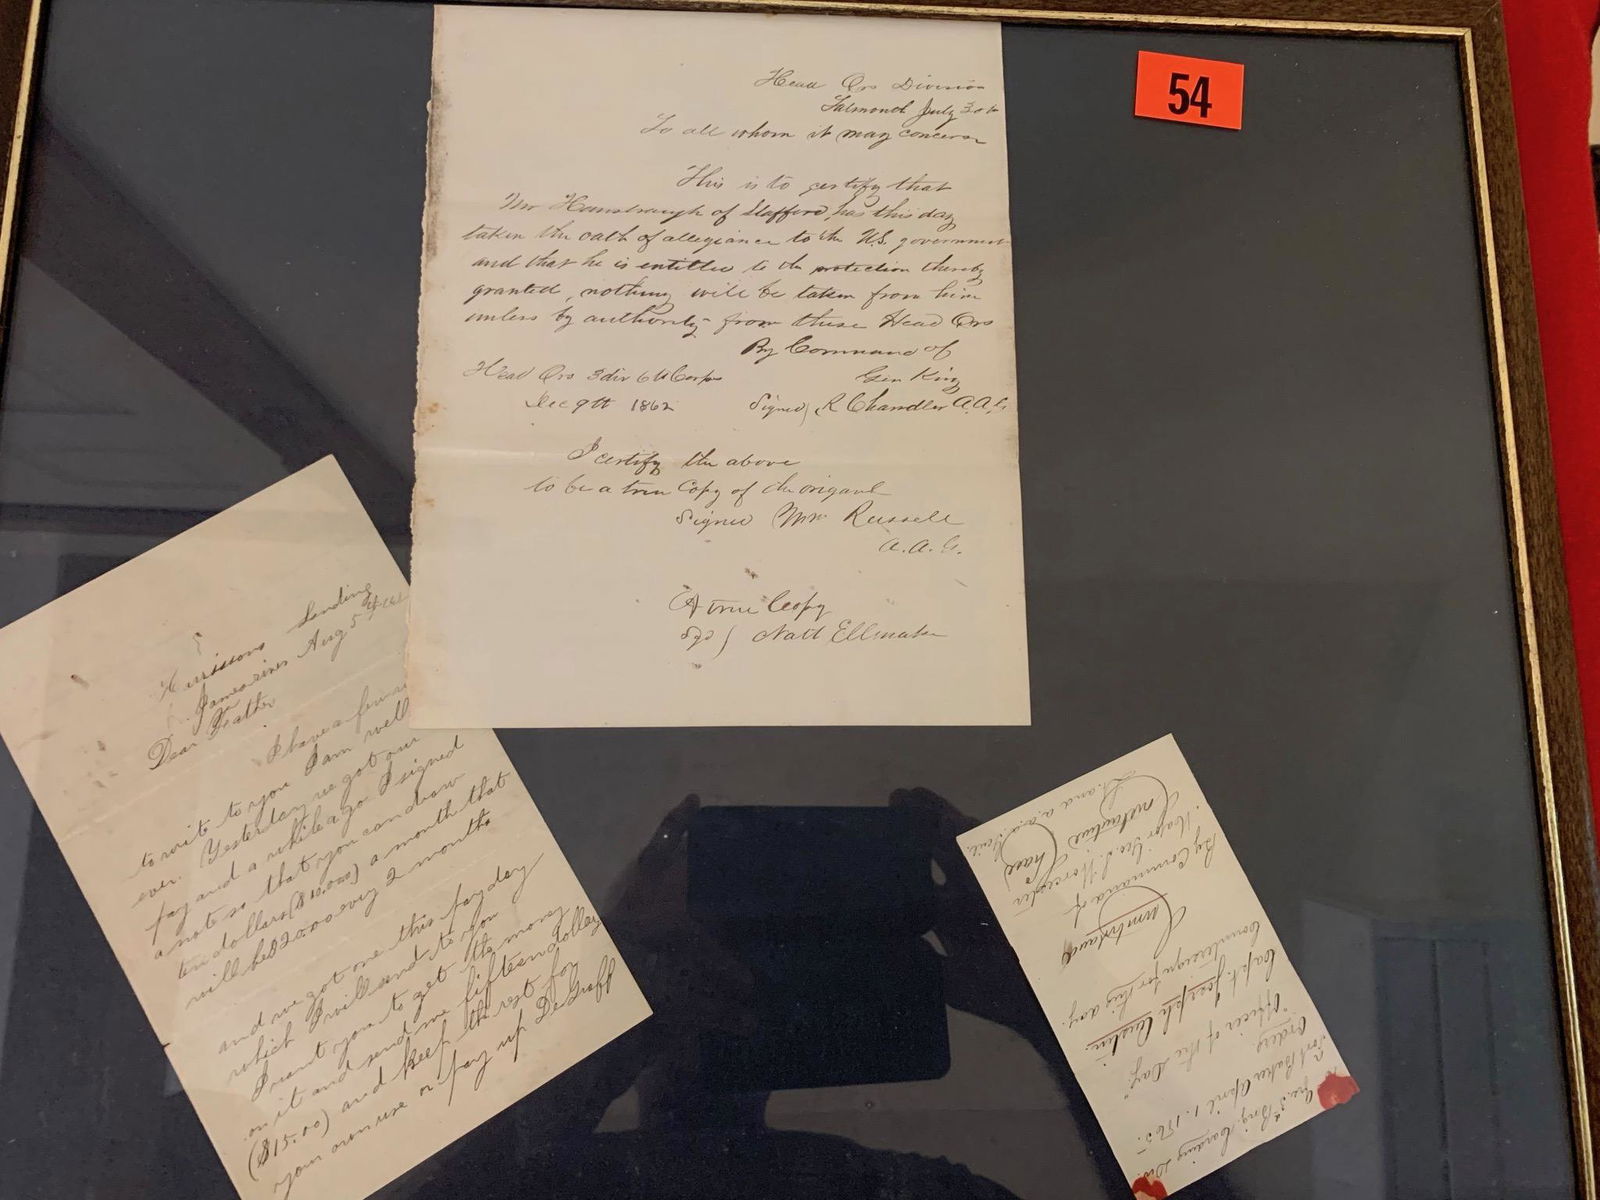 54
Head Qrs Division
Falmouth July 30th
To all whom it may concern
This is to certify that
Mr of Stafford has this day
taken the oath of allegiance to the U.S. government
and that he is entitled to the protection thereby
granted, nothing will be taken from him
unless by authority from these Head Qrs
By Command of
Gen King
Head Qrs 3 div 6th Corps
Dec 9th 1862
Signed) R Chandler A.A.G.
I certify the above
to be a true Copy of the origanl
Signed Wm Russell
A.A.G.
A true Copy
Sgd) Natt Ellmaker
Landing
James river Aug 5th
Va
Dear Feather
I have a few
to wit to you I am well
ever. Yesterday we got our
pay and a while ago I signed
a note so that you can draw
ten dollars ($10.00) a month that
will be $20.00 evry 2 months
and we got one this pay day
which I will send to you
I want you to get the money
on it and send me fifteen dollars
($15.00) and keep the rest for
your own use or pay up DeGraff
3d Brig.
Fort Baker April 1. 1865.
Orders
"Officer of the Day"
Capt. Joseph
Countersign for this day.
Cumberland
By Command of
Major Geo. S. Worcester
Chase
Lt. and a.a.a. Genl.